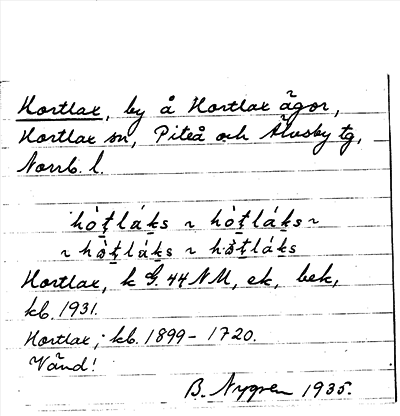 Hortlax, by å Hortlax ägor,
Hortlax sn, Piteå och Älvsby tg,
Norrb. l.
hò̱ṯláḵs ~ hò̱ṯláḵs ~
~ hò̱ṯláḵs ~ hò̱ṯláḵs
Hortlax, k G. 44 NM, ek, bek,
kb. 1931.
Hortlax; kb. 1899 – 1720.
Vänd!
B. Nygren 1935.